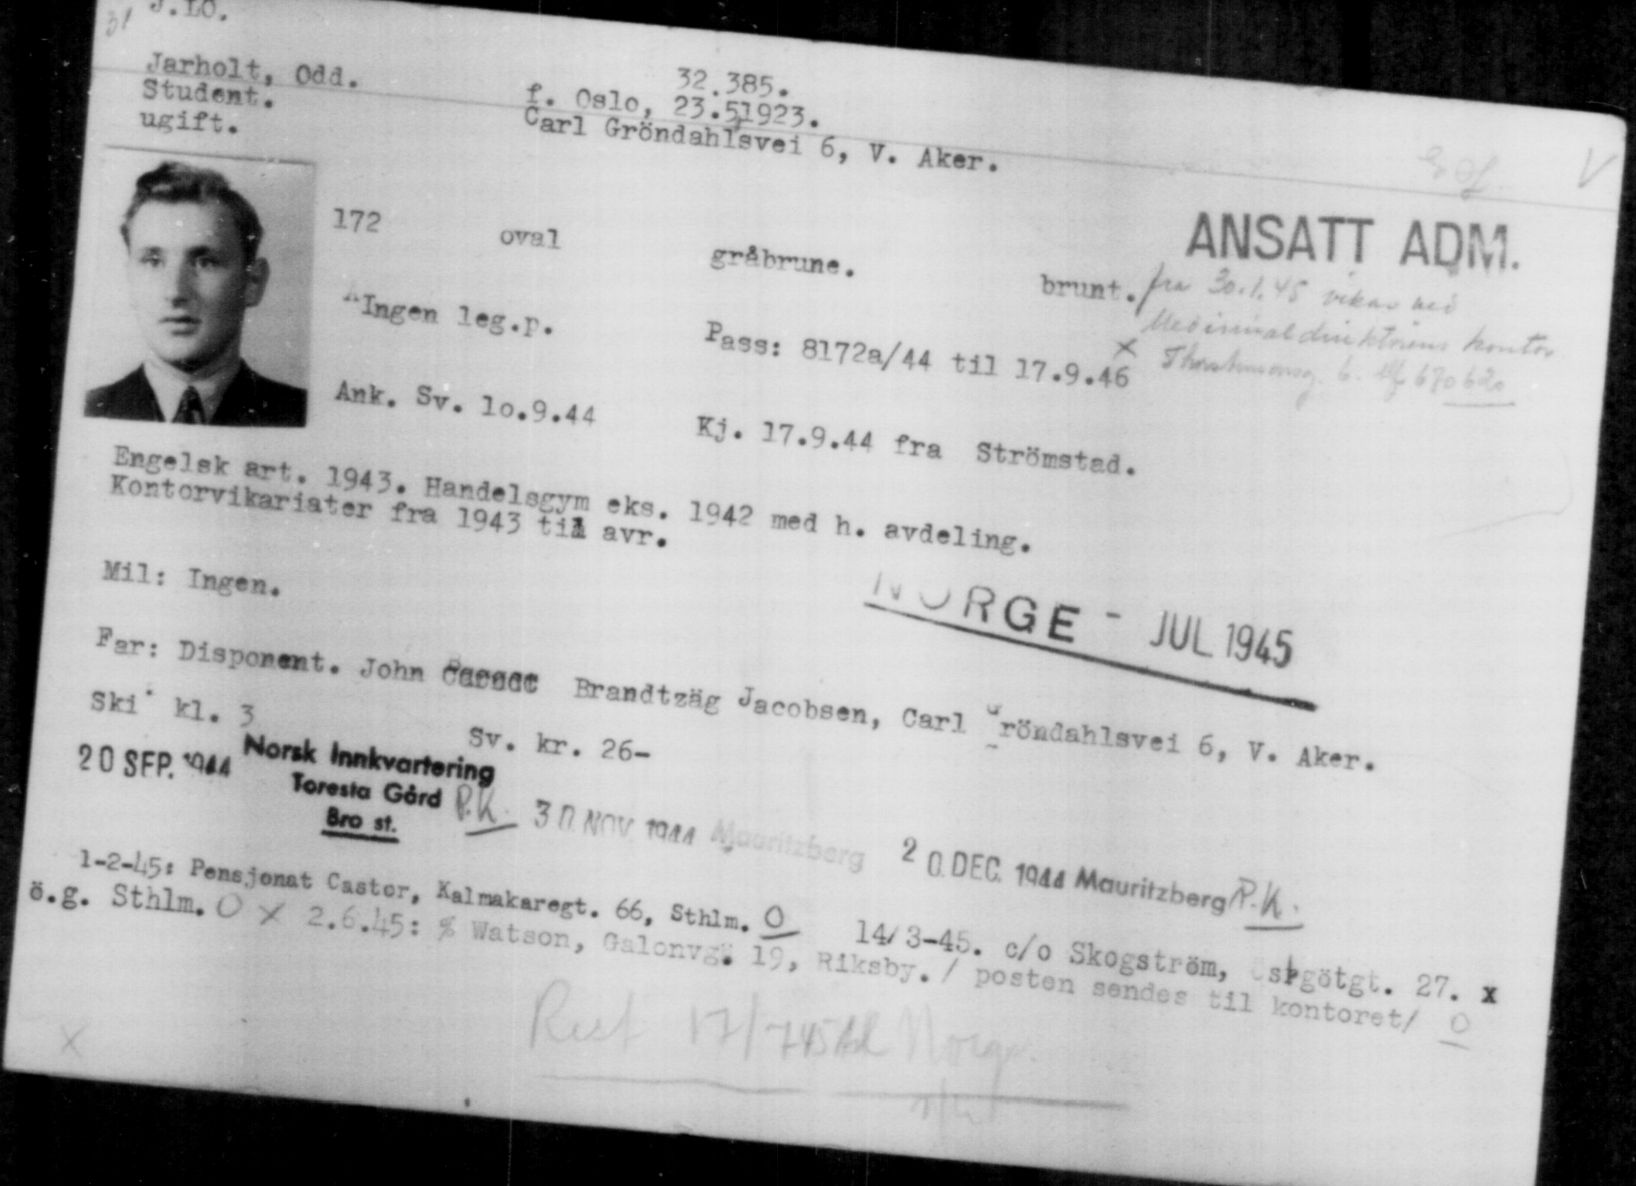 31 J.Lo.
Jarholt, Odd. 32.385.
Student. f. Oslo, 23.5.1923.
ugift. Carl Gröndahlsvei 6, V. Aker.
172 oval gråbrune. brunt.
ANSATT ADM.
fra 30.1.45 vikar ved
Medisinaldirektörens kontor
x 6. tlf 670620
Ingen leg.p. Pass: 8172a/44 til 17.9.46
Ank. Sv. 1o.9.44 Kj. 17.9.44 fra Strömstad.
Engelsk art. 1943. Handelsgym eks. 1942 med h. avdeling.
Kontorvikariater fra 1943 til avr.
Mil: Ingen.
NORGE - JUL 1945
Far: Disponent. John Brandtzäg Jacobsen, Carl Gröndahlsvei 6, V. Aker.
Ski kl. 3 Sv. kr. 26-
20 SEP. 1944 Norsk Innkvartering
Toresta Gård P.K.
Bro st.
30 NOV 1944 Mauritzberg 20. DEC. 1944 Mauritzberg P.K.
1-2-45: Pensjonat Castor, Kalmakaregt. 66, Sthlm. O 14/3-45. c/o Skogström, Östgötgt. 27. x
ö.g. Sthlm. O x 2.6.45: % Watson, Galonvg. 19, Riksby. / posten sendes til kontoret/ O
Reist 17/7 45 til Norge.
x